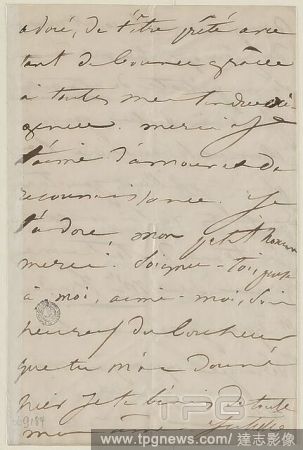 adoré, de t'être prêté avec
tant de bonne grâce
à toutes mes tendres exi
gences. merci je
t'aime d'amour et de
reconnaissance. Je
t'adore, mon petit homme
merci. Soigne-toi, pense
à moi, aime-moi, sois
heureux du bonheur
que tu m'as donné
hier je te bénis de toute
mon âme. Juliette
69184
TPG
www.tpgnews.com/達志影像